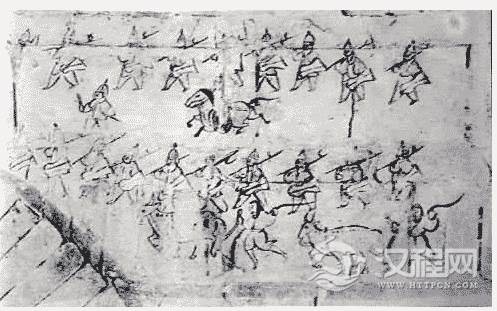 汉程网
WWW.HTTPCN.COM